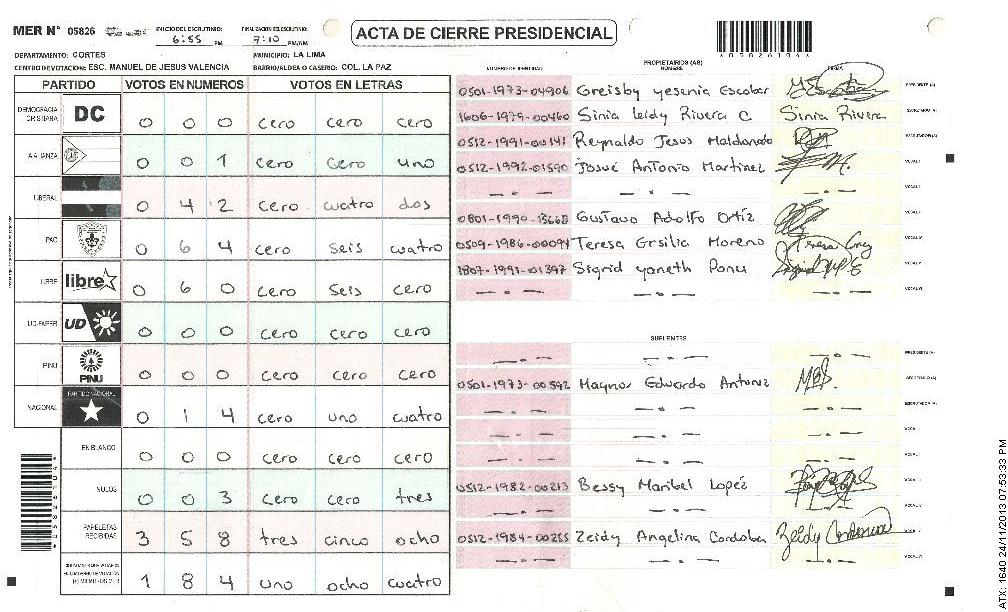 MER N° 05826
INICIO DEL ESCRUTINIO: 6:55 PM
FINALIZACION DEL ESCRUTINIO: 7:10 PM/AM
ACTA DE CIERRE PRESIDENCIAL
*05826104*
DEPARTAMENTO: CORTES
MUNICIPIO: LA LIMA
CENTRO DE VOTACION: ESC. MANUEL DE JESUS VALENCIA
BARRIO/ALDEA O CASERIO: COL. LA PAZ
PARTIDO VOTOS EN NUMEROS VOTOS EN LETRAS
DEMOCRACIA CRISTIANA DC 0 0 0 cero cero cero
ALIANZA 0 0 1 cero cero uno
LIBERAL 0 4 2 cero cuatro dos
PAC 0 6 4 cero seis cuatro
LIBRE libre 0 6 0 cero seis cero
UD-FAPER UD 0 0 0 cero cero cero
PINU PINU 0 0 0 cero cero cero
NACIONAL PARTIDO NACIONAL 0 1 4 cero uno cuatro
EN BLANCO 0 0 0 cero cero cero
NULOS 0 0 3 cero cero tres
PAPELETAS RECIBIDAS 3 5 8 tres cinco ocho
1 8 4 uno ocho cuatro
PROPIETARIOS (AS)
NUMERO DE IDENTIDAD NOMBRE FIRMA
0501-1973-04906 Greisby yesenia Escobar PRESIDENTE (A)
1606-1979-00460 Sinia leidy Rivera C Sinia Rivera SECRETARIO (A)
0512-1991-00141 Reynaldo Jesus Maldonado ESCRUTADOR (A)
0512-1992-01590 Josué Antonio Martinez VOCAL I
— . — — . — — . — VOCAL II
0801-1990-15668 Gustavo Adolfo Ortíz VOCAL III
0509-1986-00094 Teresa Ersilia Moreno VOCAL IV
1807-1991-01397 Sigrid yaneth Ponu VOCAL V
— . — — . — — . — VOCAL VI
SUPLENTES
— . — — . — — . — PRESIDENTE (A)
0501-1973-00592 Maynor Eduardo Antunez SECRETARIO (A)
— . — — . — — . — ESCRUTADOR (A)
— . — — . — — . — VOCAL I
— . — — . — — . — VOCAL II
0512-1982-00213 Bessy Maribel Lopéz
— . — — . — — . —
0512-1984-00255 Zeidy Angelina Cordoba
— . — — . — — . — VOCAL VI
ATX: 1640 24/11/2013 07:53:33 PM